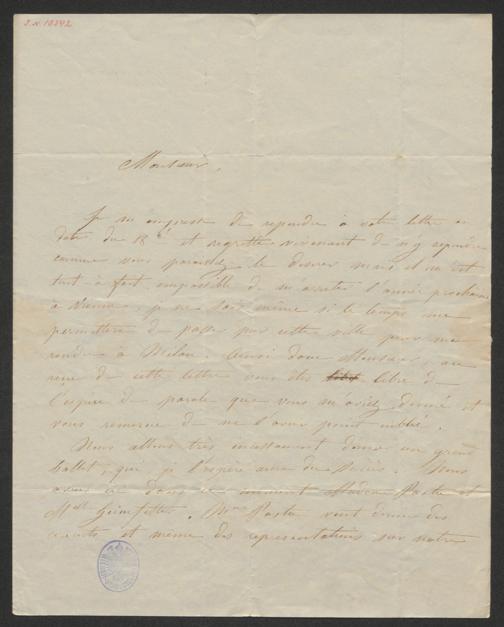 J.N. 10342
Monsieur,
Je m'empresse de repondre à votre lettre en
date du 18 et regrette vivement de n'y repondre
comme vous paraissez le desirer mais il m'est
tout à fait impossible de m'arreter l'année prochaine
à Vienne, je ne sais même si le temps me
permettera de passer par cette ville pour me
rendre à Milan. Ainsi donc Monsieur, au
reçu de cette lettre vous êtes libre de
l'espèce de parole que vous m'aviez donné et
vous remercie de ne l'avoir point oublié.
Nous allons très incessament donner un grand
ballet, qui je l'espère aura du succès. Nous
avons ici dans ce moment Madame Pasta et
Mlle . Mme Pasta vient donner des
concerts et meme des representations sur notre